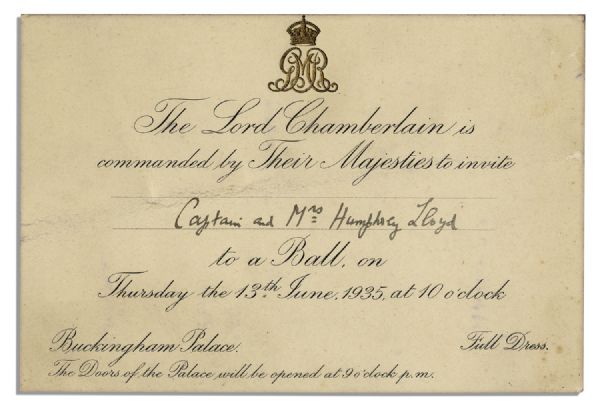 GMR
The Lord Chamberlain is
commanded by Their Majesties to invite
Captain and Mrs Humphrey Lloyd
to a Ball, on
Thursday the 13th June, 1935, at 10 o'clock
Buckingham Palace. Full Dress.
The Doors of the Palace will be opened at 9 o'clock p.m.